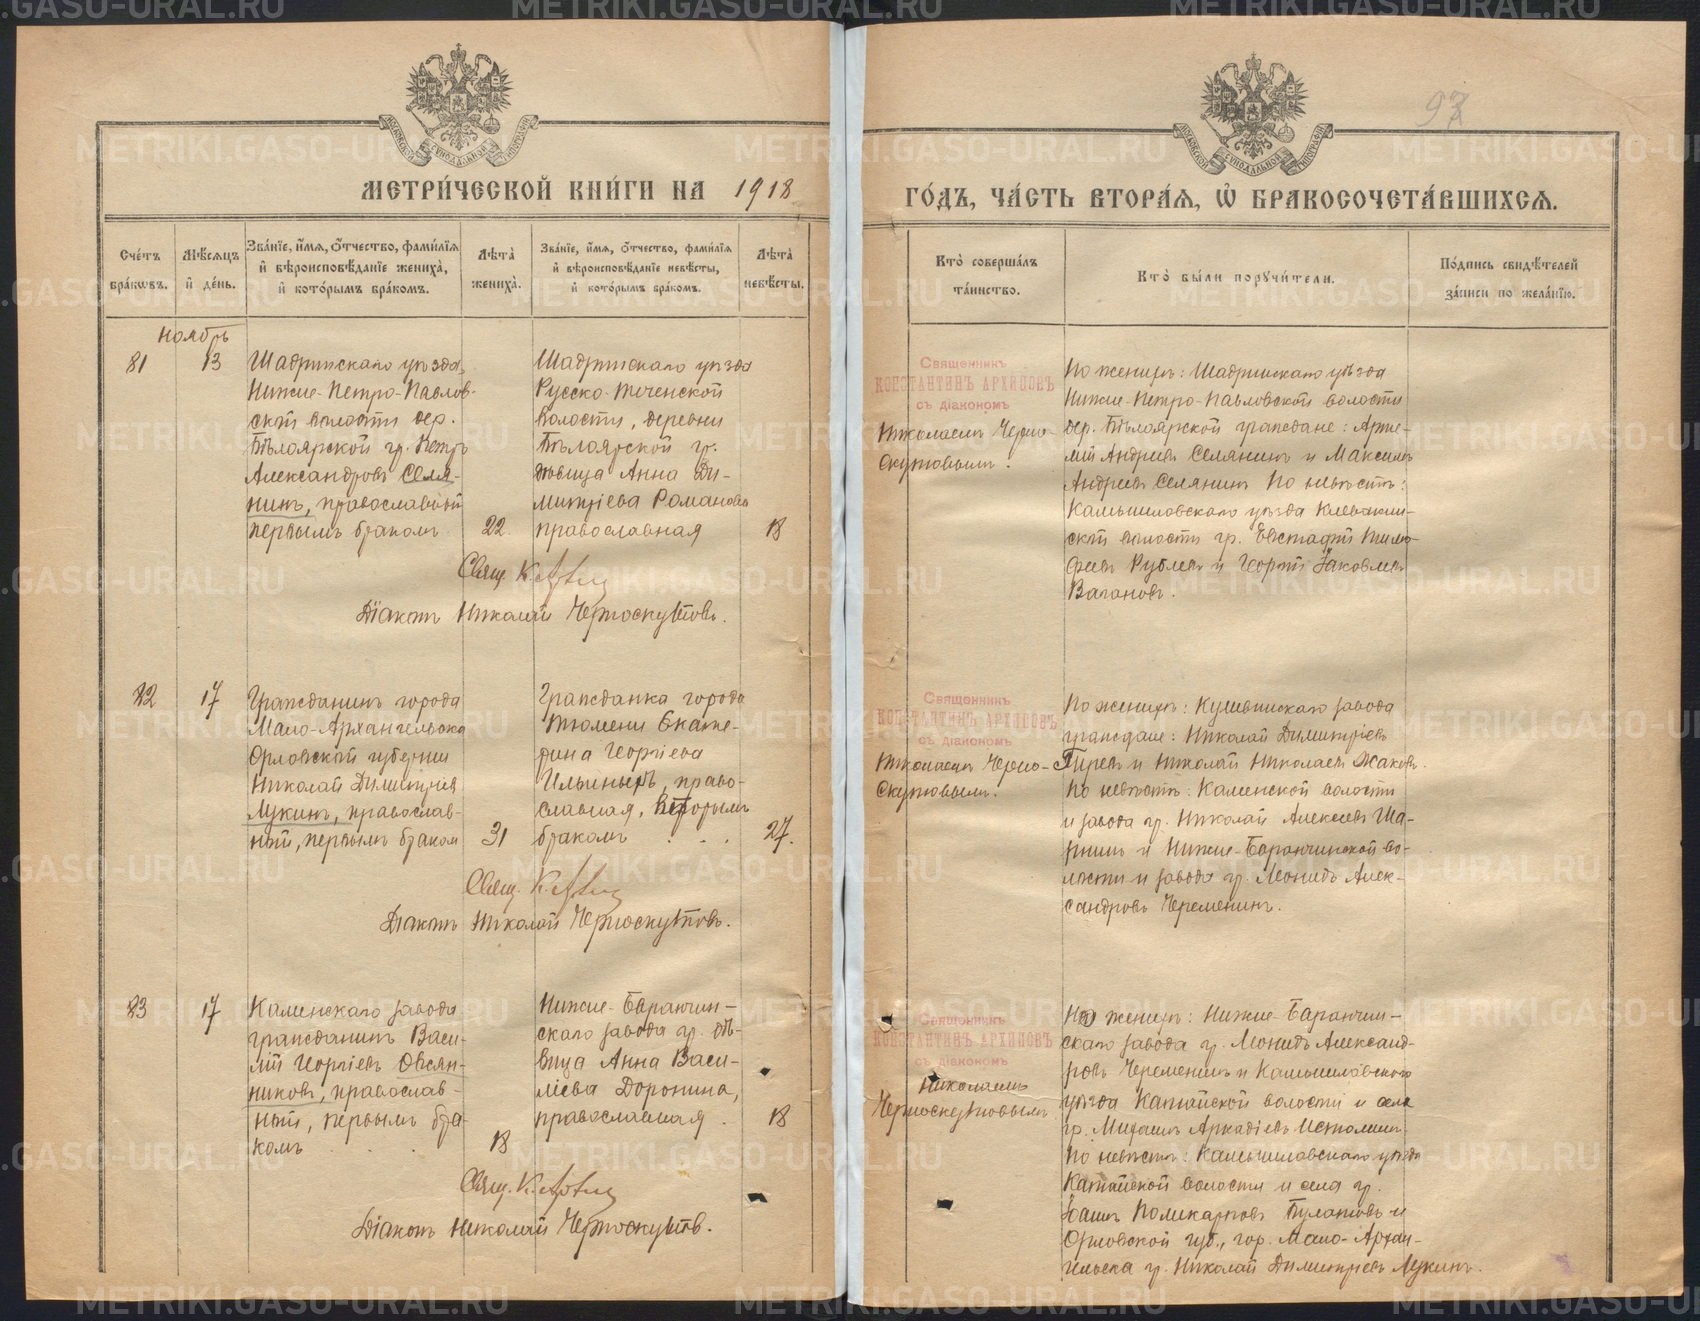 97
МОСКОВСКОЙ СѴНОДАЛЬНОЙ ТИПОГРАФІИ
МОСКОВСКОЙ СѴНОДАЛЬНОЙ ТИПОГРАФІИ
МЕТРИ́ЧЕСКОЙ КНИ́ГИ НА 1918
ГО́ДЪ, ЧА́СТЬ ВТОРА́Ѧ, Ѡ҆ БРАКОСОЧЕТА́ВШИХСѦ.
Сче́тъ
бра́кѡвъ.
Мѣ́сѧцъ
и҆ де́нь.
Зва́нїе, и҆́мѧ, ѻ҆́тчество, фами́лїѧ
и҆ вѣроисповѣ́данїе жениха̀,
и҆ кото́рымъ бра́комъ.
Лѣ́та
жениха̀.
Зва́нїе, и҆́мѧ, ѻ҆́тчество, фами́лїѧ
и҆ вѣроисповѣ́данїе невѣ́сты,
и҆ кото́рымъ бра́комъ.
Лѣ́та
невѣ́сты.
Кто̀ соверша́лъ
та́инство.
Кто̀ бы́ли поручи́тели.
По́дпись свидѣ́телей
за́писи по жела́нїю.
Ноябрь
81
13
Шадринскаго уѣзда,
Нижне-Петро-Павлов-
ской волости дер.
Бѣлоярской гр. Петръ
Александровъ Селя-
нинъ, православный
первымъ бракомъ
22.
Шадринскаго уѣзда
Русско-Теченской
волости, деревни
Бѣлоярской гр.
дѣвица Анна Ди-
митріева Романова
православная
18
Священникъ
КОНСТАНТИНЪ АРХИПОВЪ
съ діакономъ
Николаемъ Черно-
скутовымъ.
По женихѣ: Шадринскаго уѣзда
Нижне-Петро-Павловской волости
дер. Бѣлоярской граждане: Арте-
мій Андреевъ Селянинъ и Максимъ
Андреевъ Селянинъ По невѣстѣ:
Камышловскаго уѣзда
ской волости гр. Евстафій Тимо-
феевъ Рублевъ и Георгій Іаковлевъ
Вагановъ.
Свящ. К. Архип
Діаконъ Николай Черноскутовъ.
82
17
Гражданинъ города
Мало-Архангельска
Орловской губерніи
Николай Димитріев
Лукинъ, православ-
ный, первымъ бракомъ
31
Гражданка города
Тюмени Екате-
рина Георгіева
Ильиныхъ, право-
славная, вторымъ
бракомъ . . .
27.
Священникъ
КОНСТАНТИНЪ АРХИПОВЪ
съ діакономъ
Николаемъ Черно-
скутовымъ.
По женихѣ: Кушвинскаго завода
граждане: Николай Димитріевъ
Гиревъ и Николай Николаевъ Жаковъ.
По невѣстѣ: Каменской волости
и завода гр. Николай Алексеевъ Ша-
ринъ и Нижне-Баранчинской во-
лости и завода гр. Леонидъ Алек-
сандровъ Череменинъ.
Свящ. К. Архип
Діаконъ Николай Черноскутовъ.
83
17
Каменскаго завода
гражданинъ Васи-
лій Георгіевъ Овсян-
никовъ, православ-
ный, первымъ бра-
комъ . . .
18
Нижне-Баранчин-
скаго завода гр. дѣ-
вица Анна Васи-
ліева Доронина,
православная .
18
Священникъ
КОНСТАНТИНЪ АРХИПОВЪ
съ діакономъ
Николаемъ
Черноскутовымъ
По женихѣ: Нижне-Баранчин-
скаго завода гр. Леонидъ Александ-
ровъ Черемнинъ и Камышловскаго
уѣзда Катайской волости и села
гр. Михаилъ Аркадіевъ Истоминъ
По невѣстѣ: Камышловскаго уѣзда
Катайской волости и села гр.
Іоаннъ Поликарповъ Булатовъ и
Орловской губ., гор. Мало-Архан-
гельска гр. Николай Димитріевъ Лукинъ.
Свящ. К. Архип
Діаконъ Николай Черноскутовъ.
METRIKI.GASO-URAL.RU